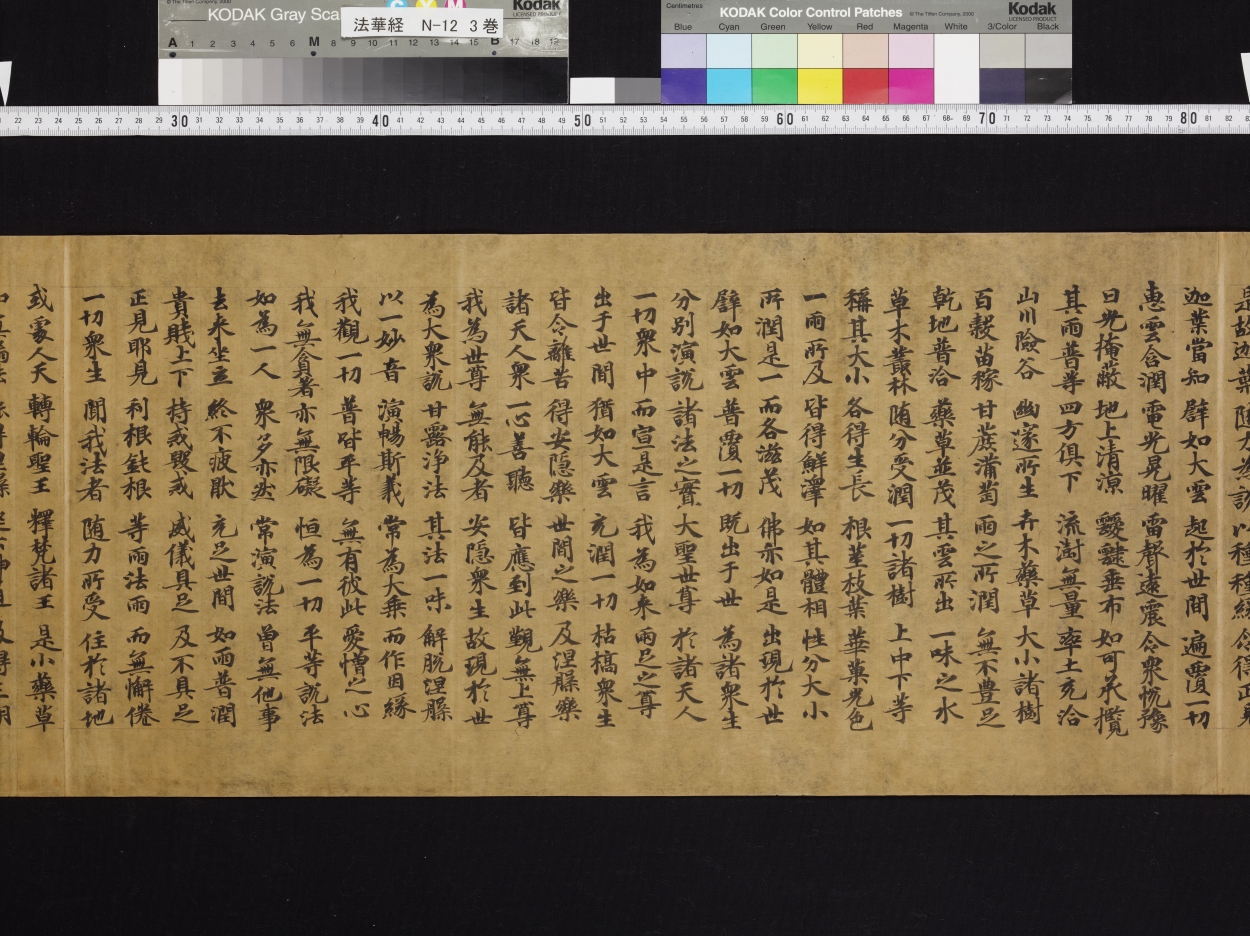 KODAK Gray Scale
© The Tiffen Company, 2000
Kodak
LICENSED PRODUCT
C Y M
法華経 N-12 3巻
A 1 2 3 4 5 6 M 8 9 10 11 12 13 14 15 B 17 18 19
Centimetres
KODAK Color Control Patches
© The Tiffen Company, 2000
Kodak
LICENSED PRODUCT
Blue Cyan Green Yellow Red Magenta White 3/Color Black
22 23 24 25 26 27 28 29 30 31 32 33 34 35 36 37 38 39 40 41 42 43 44 45 46 47 48 49 50 51 52 53 54 55 56 57 58 59 60 61 62 63 64 65 66 67 68 69 70 71 72 73 74 75 76 77 78 79 80 81 82
是故迦葉 随力為説 以種種縁 令得正見
迦葉當知 譬如大雲 起於世間 遍覆一切
恵雲含潤 電光晃曜 雷聲遠震 令衆悦豫
日光掩蔽 地上清涼 靉靆垂布 如可承攬
其雨普等 四方俱下 流澍無量 率土充洽
山川險谷 幽邃所生 卉木藥草 大小諸樹
百穀苗稼 甘蔗蒲萄 雨之所潤 無不豊足
乾地普洽 藥草並茂 其雲所出 一味之水
草木叢林 随分受潤 一切諸樹 上中下等
稱其大小 各得生長 根莖枝葉 華菓光色
一雨所及 皆得鮮澤 如其體相 性分大小
所潤是一 而各滋茂 佛亦如是 出現於世
譬如大雲 普覆一切 既出于世 為諸衆生
分別演説 諸法之實 大聖世尊 於諸天人
一切衆中 而宣是言 我為如来 兩足之尊
出于世間 猶如大雲 充潤一切 枯槁衆生
皆令離苦 得安隠樂 世間之樂 及涅槃樂
諸天人衆 一心善聽 皆應到此 覲無上尊
我為世尊 無能及者 安隠衆生 故現於世
為大衆説 甘露浄法 其法一味 解脱涅槃
以一妙音 演暢斯義 常為大乗 而作因縁
我觀一切 普皆平等 無有彼此 愛憎之心
我無貪著 亦無限礙 恒為一切 平等説法
如為一人 衆多亦然 常演説法 曽無他事
去来坐立 終不疲猒 充足世間 如雨普潤
貴賤上下 持戒毀戒 威儀具足 及不具足
正見耶見 利根鈍根 等雨法雨 而無懈倦
一切衆生 聞我法者 随力所受 住於諸地
或處人天 轉輪聖王 釋梵諸王 是小藥草